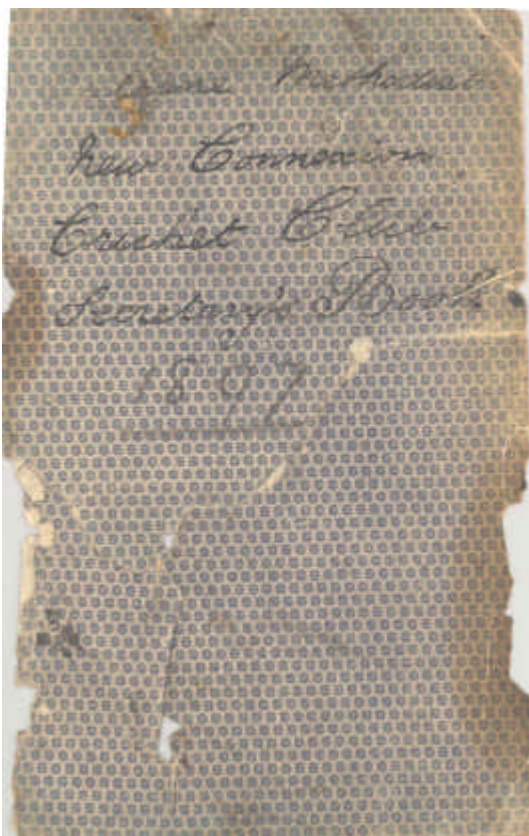 Methodist
New Connexion
Cricket Club
Secretary's Book
1897